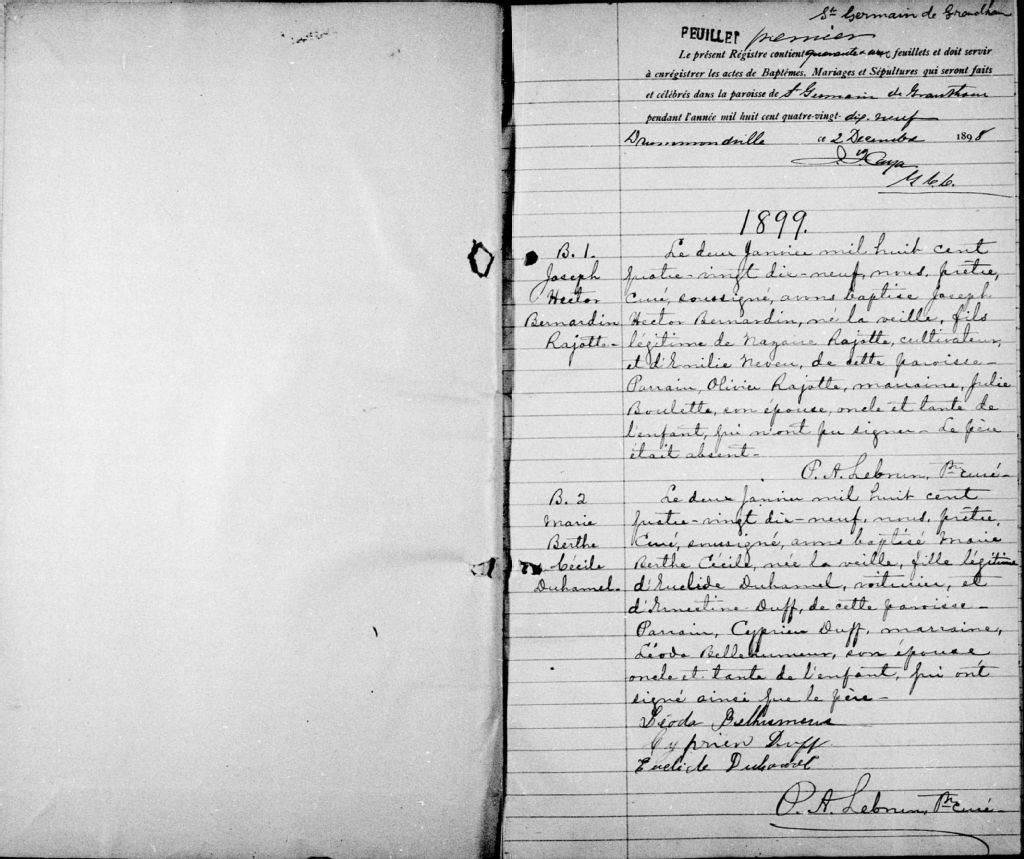 St Germain de Grantham
FEUILLET premier
Le présent Régistre contient quarante feuillets et doit servir
à enrégistrer les actes de Baptêmes, Mariages et Sépultures qui seront faits
et célébrés dans la paroisse de St Germain de Grantham
pendant l'année mil huit cent quatre-vingt- dix-neuf
Drummondville ce 2 Decembre 1898
1899.
B. 1.
Joseph
Hector
Bernardin
Rajotte-
Le deux Janvier mil huit cent
quatre-vingt dix-neuf, nous, prêtre,
Curé, soussigné, avons baptisé Joseph
Hector Bernardin, né la veille, fils
légitime de Nazaire Rajotte, cultivateur,
et d'Emilie Neveu, de cette paroisse-
Parrain, Olivier Rajotte, marraine, Julie
Boulette, son épouse, oncle et tante de
l'enfant, qui n'ont pu signer- Le père
était absent-
P. A. Lebrun, Ptre curé-
B. 2
Marie
Berthe
Cécile
Duhamel-
Le deux Janvier mil huit cent
quatre-vingt dix-neuf, nous, prêtre,
Curé, soussigné, avons baptisé Marie
Berthe Cécile, née la veille, fille légitime
d'Euclide Duhamel, voiturier, et
d'Ernestine Duff, de cette paroisse-
Parrain, Cyprien Duff, marraine,
Léoda Bellehumeur, son épouse
oncle et tante de l'enfant, qui ont
signé ainsi que le père-
Léoda Bellhumeur
Cyprien Duff
Euclide Duhamel
P. A. Lebrun, Ptre curé-